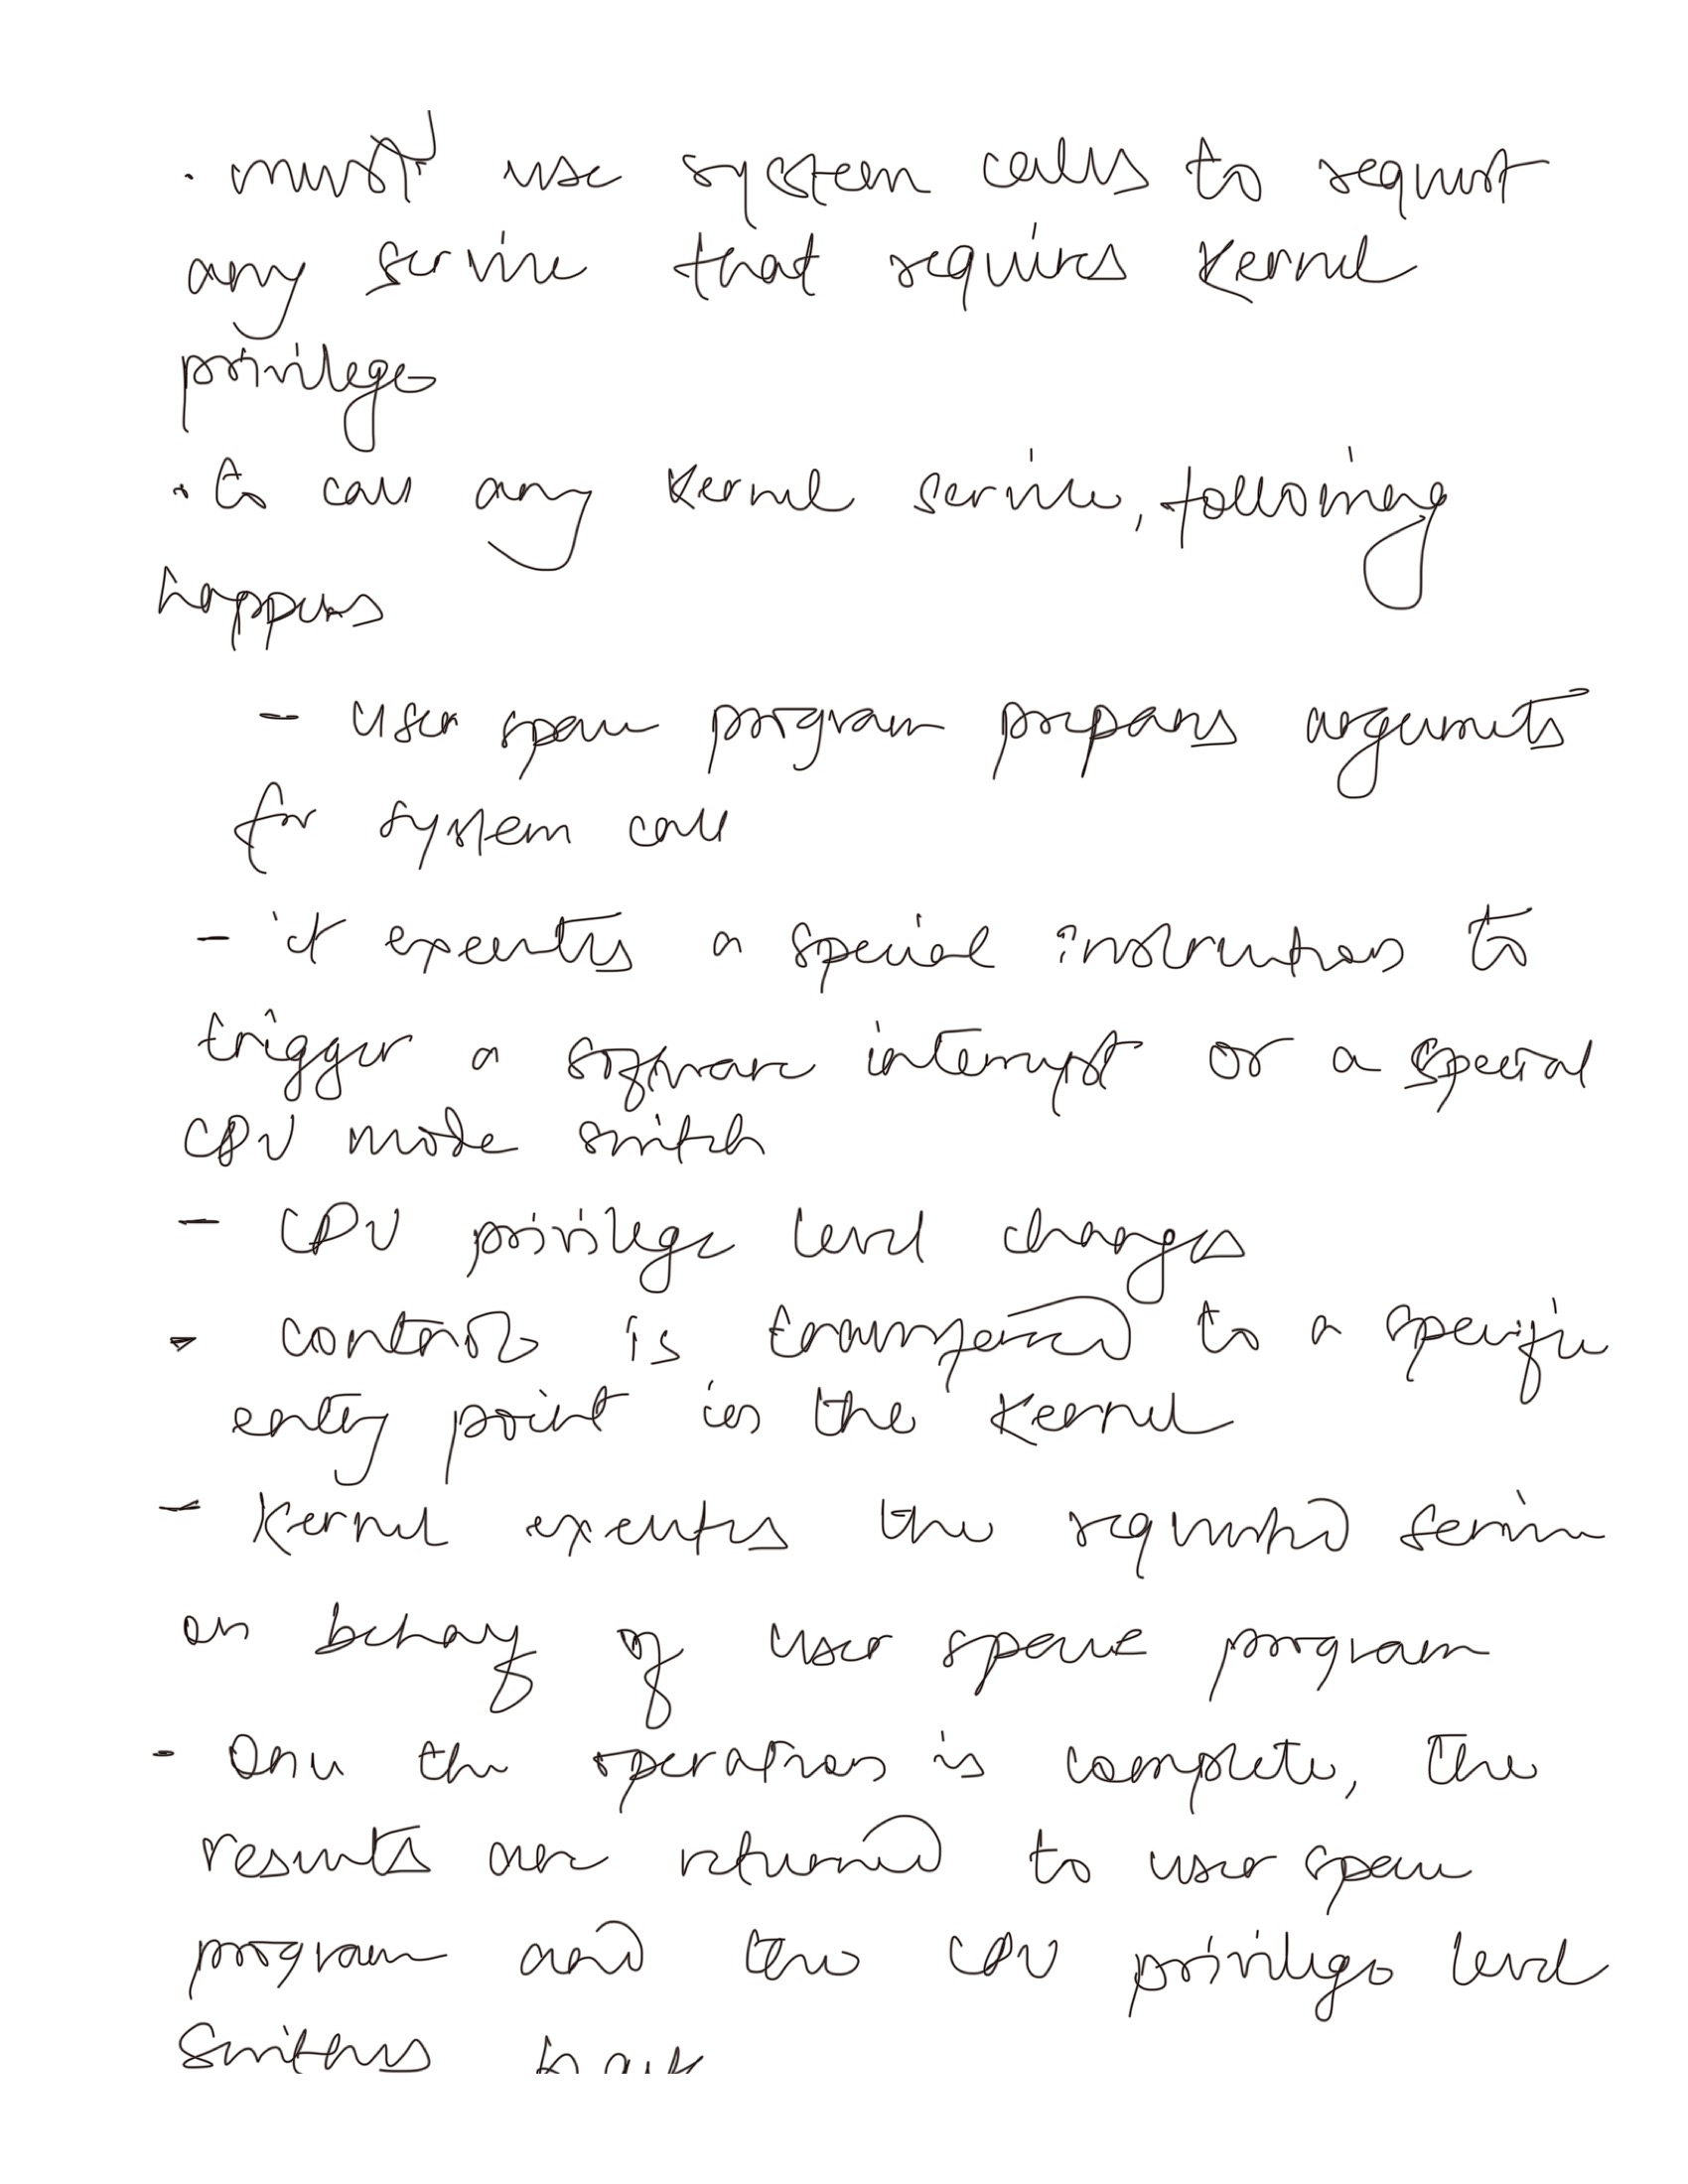 · must use system calls to request
any service that requires Kernel
privilege
· to call any Kernel service, following
happens
- user space program prepares arguments
for system call
- it executes a special instructions to
trigger a software interrupt or a special
CPU mode switch
- CPU privilege level changes
- control is transferred to a specific
entry point in the Kernel
- Kernel executes the requested service
on behalf of user space program
- Once the operation is complete, the
results are returned to user space
program and the CPU privilege level
Switches back